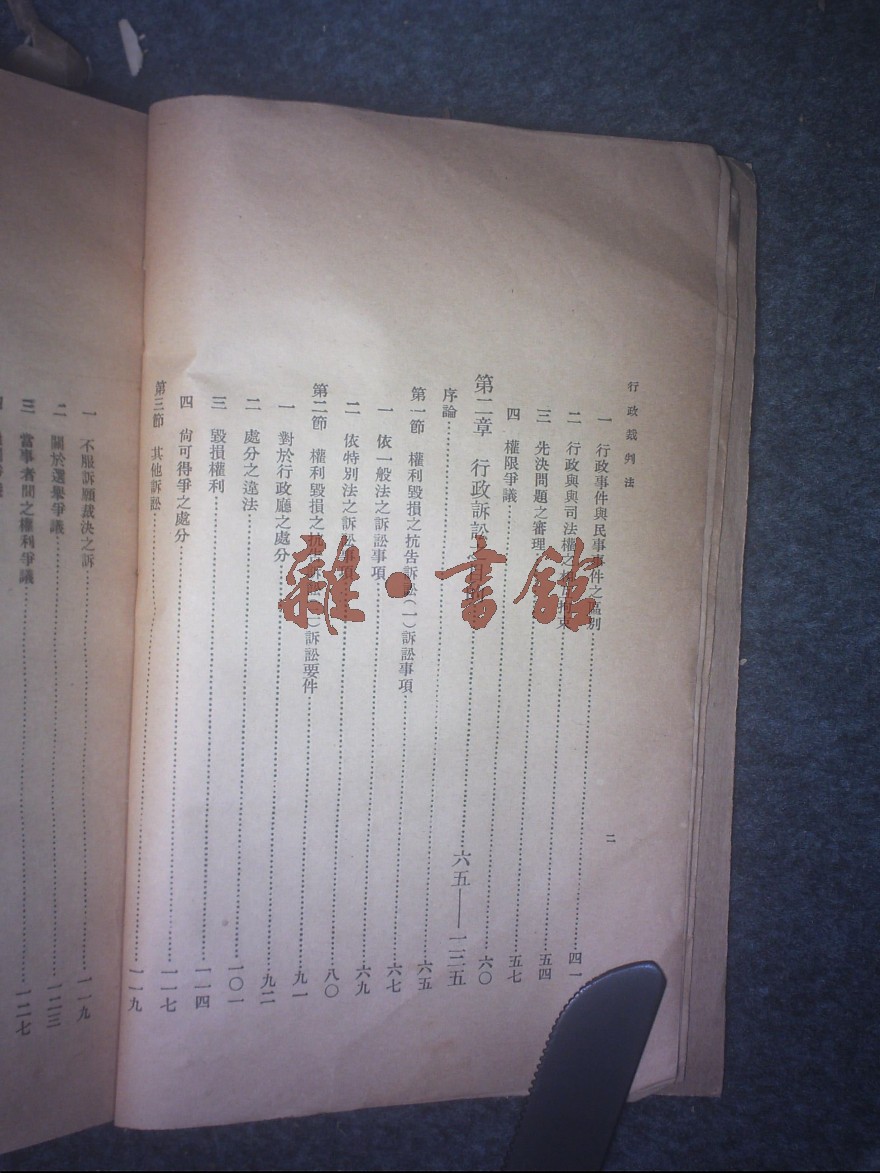 行政裁判法
二
一 行政事件與民事事件之區別 四一
二 行政與與司法權之拘束 五四
三 先決問題之審理 五七
四 權限爭議 六〇
第二章 行政訴訟 六五——一三五
序論 六五
第一節 權利毀損之抗告訴訟(一)訴訟事項 六七
一 依一般法之訴訟事項 六九
二 依特別法之訴訟事項 八〇
第二節 權利毀損之抗告訴訟(二)訴訟要件 九一
一 對於行政廳之處分 九二
二 處分之違法 一〇一
三 毀損權利 一一四
四 尙可得爭之處分 一一七
第三節 其他訴訟 一一九
一 不服訴願裁決之訴 一一九
二 關於選舉爭議 一二三
三 當事者間之權利爭議 一二七
雜·書館